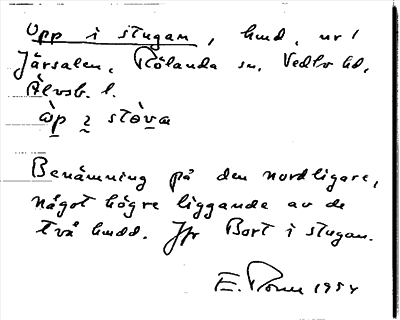 Upp i stugan, hmd. nr 1
Järsalen, Rölanda sn. Vedbo hd,
Älvsb. l.
òp i stòva
Benämning på den nordligare,
något högre liggande av de
två hmdd. Jfr Bort i stugan.
E. 1954